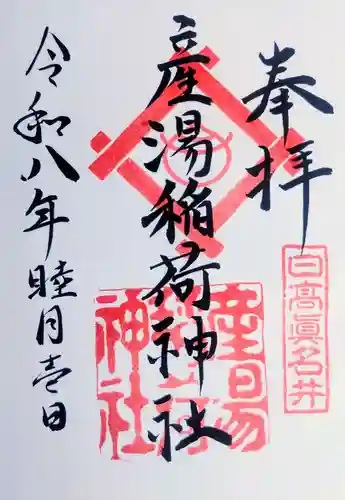 奉拝
日高真名井
産湯稲荷神社
産湯稲荷神社
令和八年睦月壱日